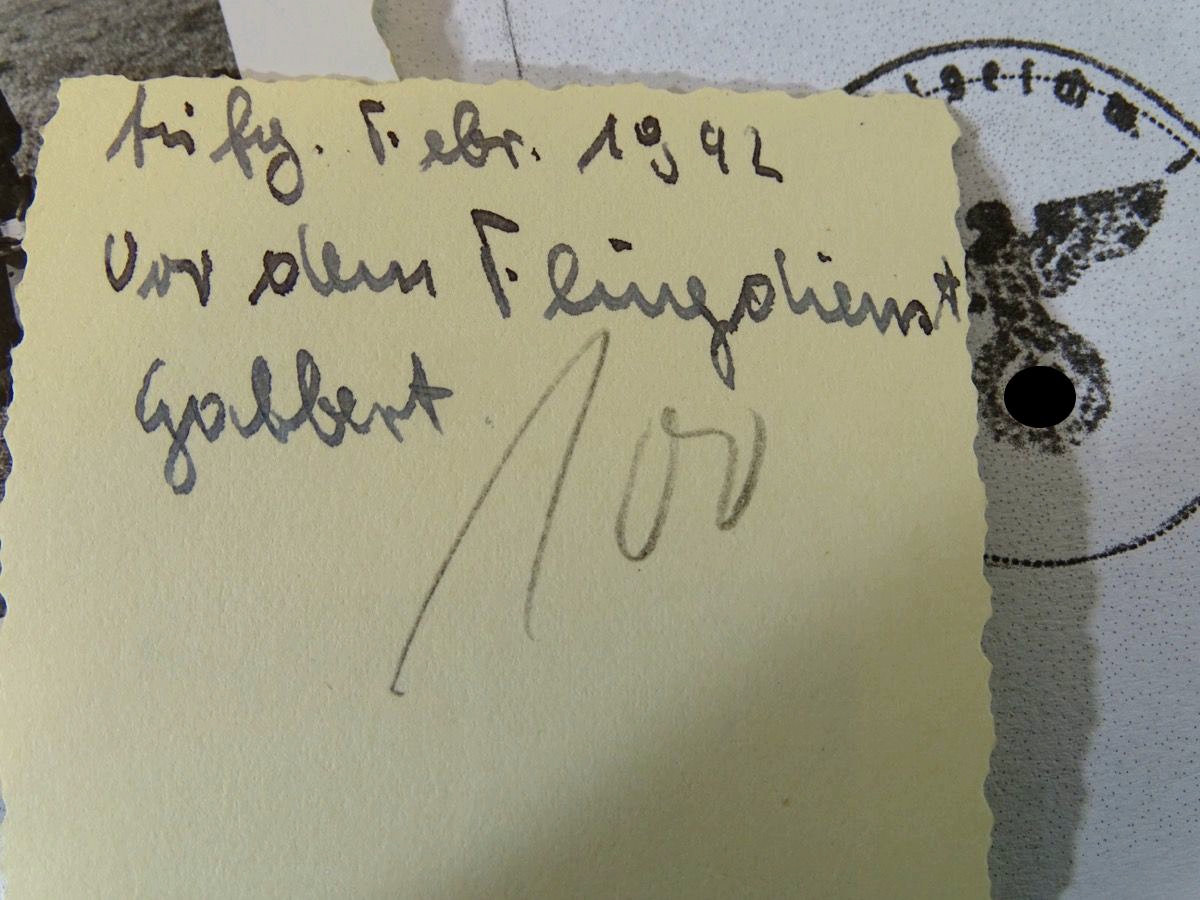 Anfg. Febr. 1942
Vor dem Flugdienst
Gabbert
100